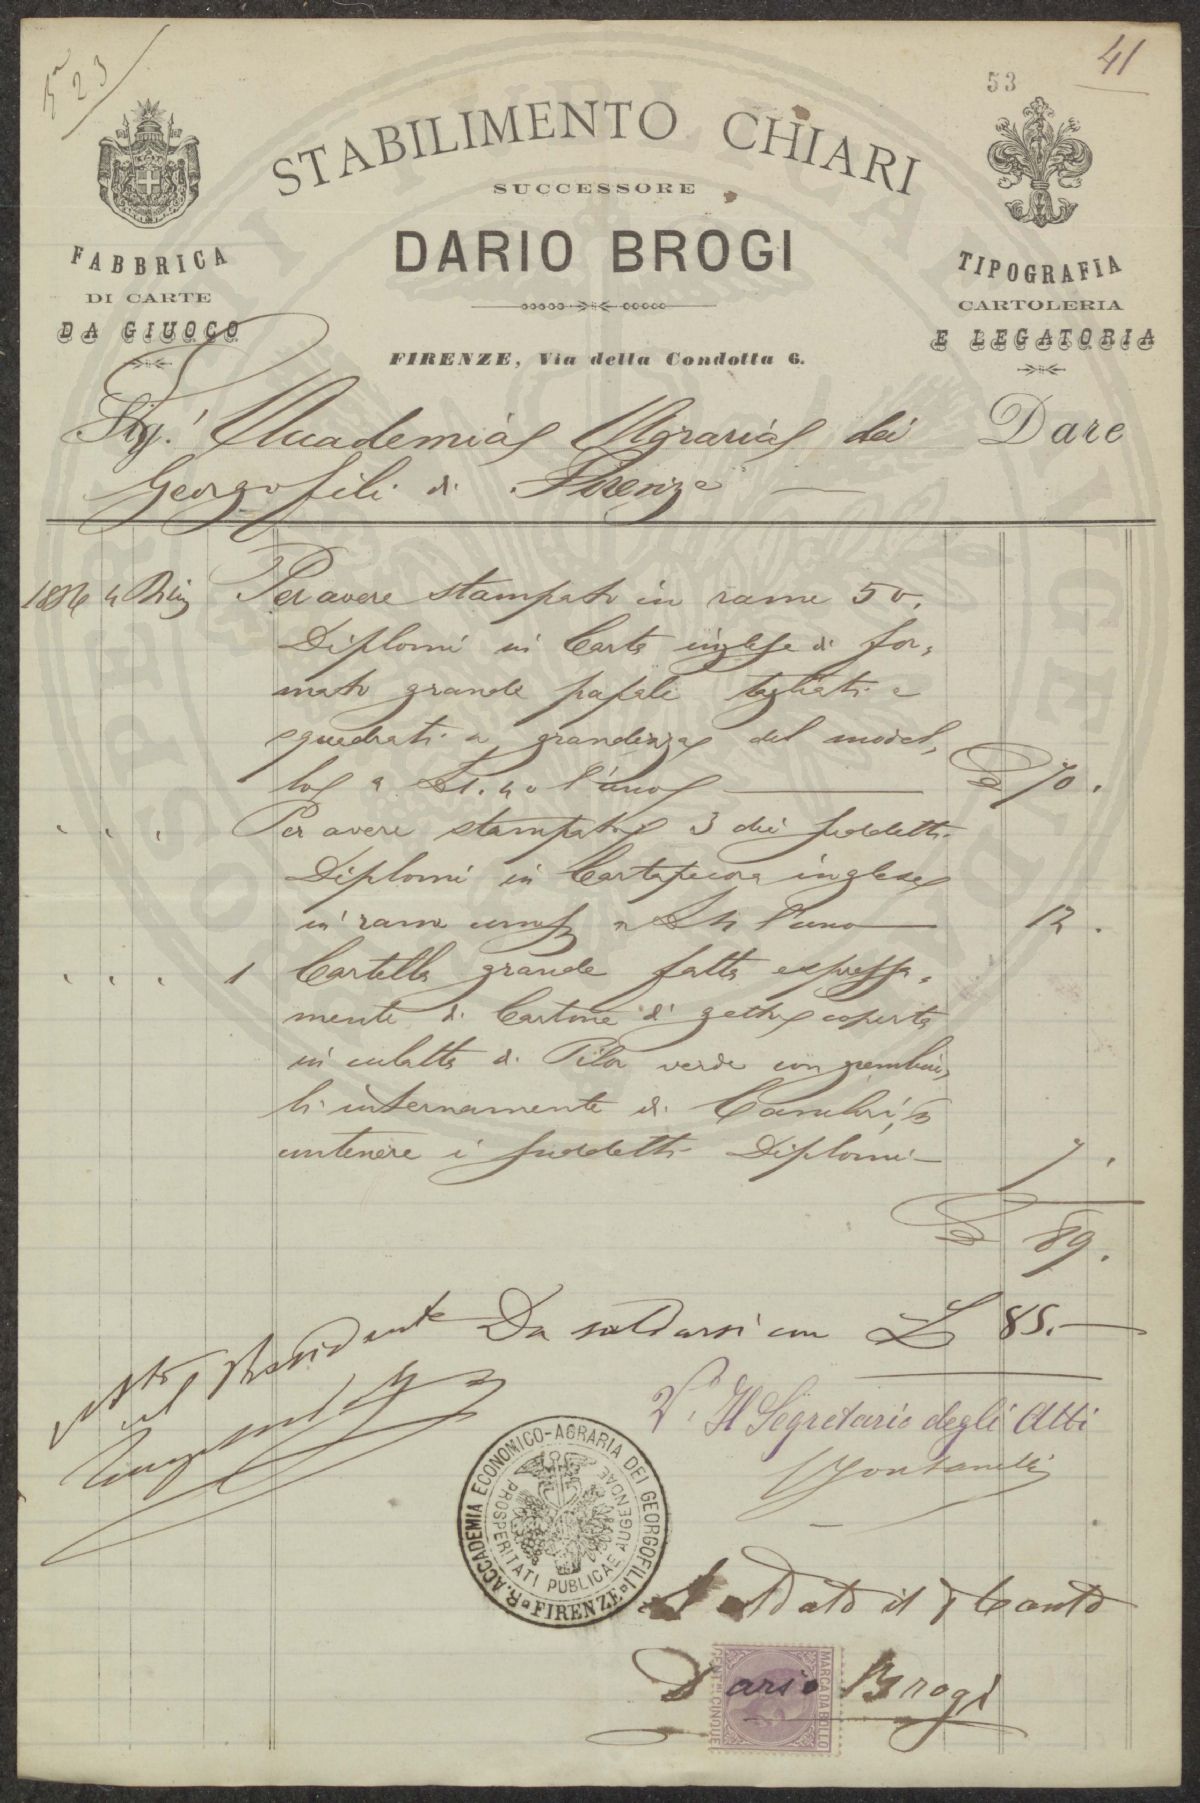 23
41
53
STABILIMENTO CHIARI
SUCCESSORE
DARIO BROGI
FABBRICA
DI CARTE
DA GIUOCO
TIPOGRAFIA
CARTOLERIA
E LEGATORIA
FIRENZE, Via della Condotta 6.
Sig.i Accademia Agraria dei Dare
Georgofili di Firenze
1886 4 Per avere stampato in rame 50.
Diplomi in Carta inglese di for,
mato grande papale tagliati e
squadrati a grandezza del model,
lo a L 1.40 l'uno £ 70.
" " " Per avere stampato 3 dei suddetti
Diplomi in Cartapecora inglese
in rame a L 4 l'uno 12.
" " " 1 Cartella grande fatta espressa,
mente di Cartone di getto coperta
in culatta di verde con grembiu,
li internamente di
contenere i suddetti Diplomi 7.
£ 89.
Da saldarsi con £ 85.
Visto
il Presidente
V. Il Segretario degli Atti
Fontanelli
R. ACCADEMIA ECONOMICO-AGRARIA DEI GEORGOFILI
FIRENZE
PROSPERITATI PUBLICAE AUGENDAE
Saldato il Conto
Dario Brogi
MARCA DA BOLLO
CENT.MI CINQUE